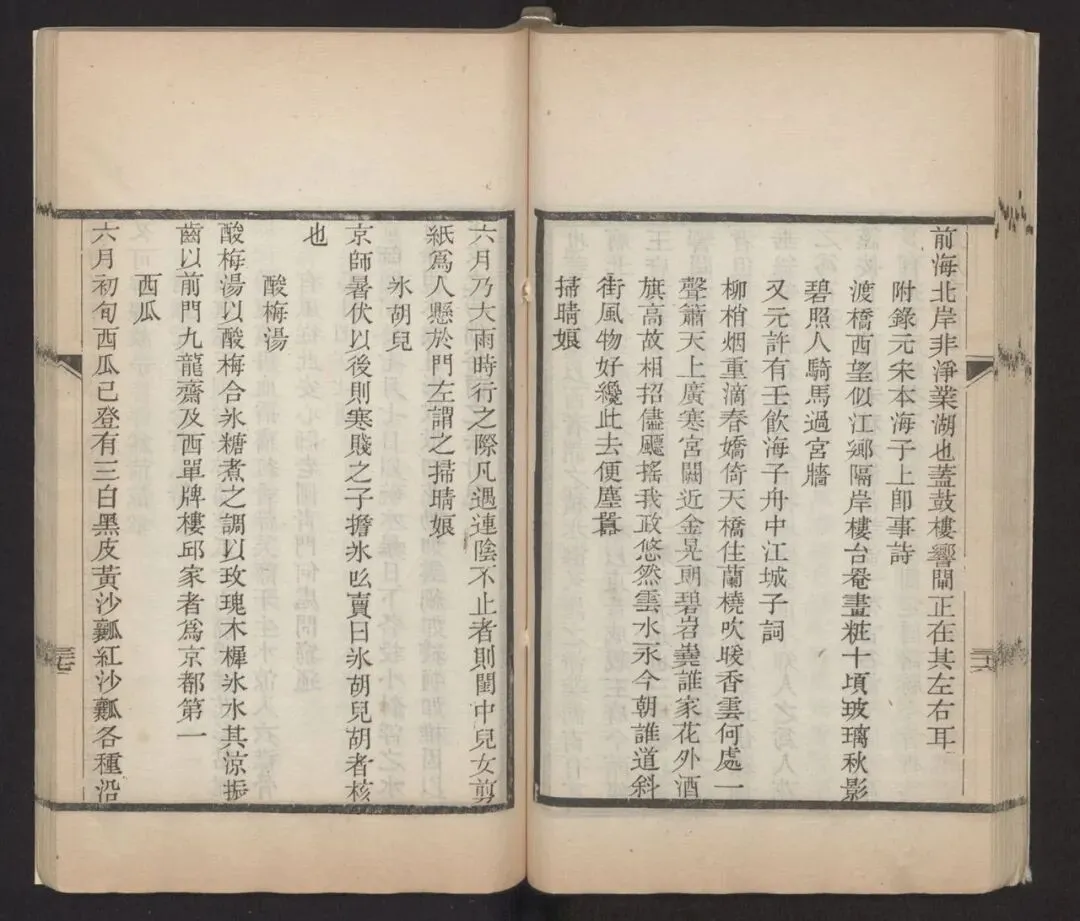 前海北岸非淨業湖也蓋鼓樓響閘正在其左右耳
附錄元宋本海子上卽事詩
渡橋西望似江鄉隔岸樓台罨畫粧十頃玻璃秋影
碧照人騎馬過宮牆
又元許有壬飲海子舟中江城子詞
柳梢烟重滴春嬌倚天橋住蘭橈吹暖香雲何處一
聲簫天上廣寒宮闕近金晃朗碧岧嶤誰家花外酒
旗高故相招儘飄搖我政悠然雲水永今朝誰道斜
街風物好纔此去便塵囂
掃晴娘
六月乃大雨時行之際凡遇連陰不止者則閨中兒女剪
紙爲人懸於門左謂之掃晴娘
氷胡兒
京師暑伏以後則寒賤之子擔氷吆賣曰氷胡兒胡者核
也
酸梅湯
酸梅湯以酸梅合氷糖煮之調以玫瑰木樨氷水其涼振
齒以前門九龍齋及西單牌樓邱家者爲京都第一
西瓜
六月初旬西瓜已登有三白黑皮黃沙瓤紅沙瓤各種沿